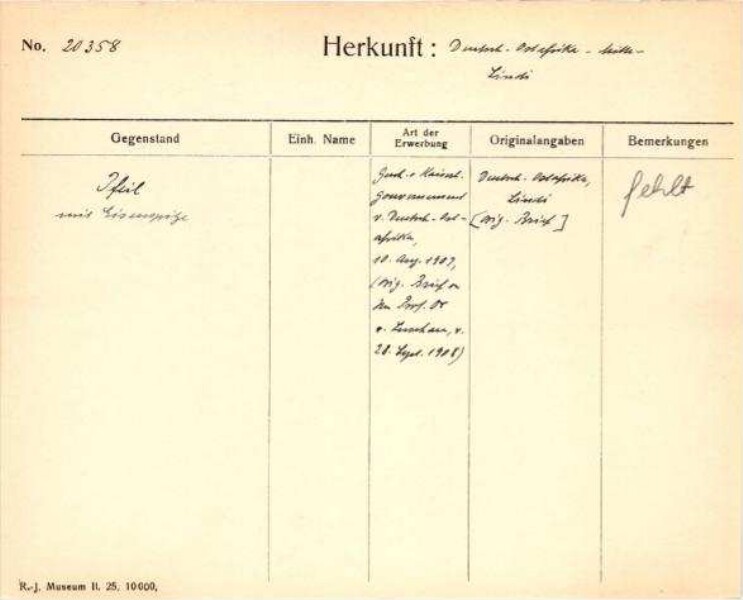 No. 20358
Herkunft: Deutsch-Ostafrika -
Lindi
Gegenstand
Einh. Name
Art der Erwerbung
Originalangaben
Bemerkungen
Pfeil
mit Eisenspitze
Gesch. v. Kaiserl.
Gouvernement
v. Deutsch-Ost-
afrika,
10. Aug. 1907,
(Orig. Brief an
den Prof. Dr
v. Luschan, v.
28. Sept. 1908)
Deutsch-Ostafrika,
Lindi
[Orig. Brief]
fehlt
R.-J. Museum II. 25. 10000,